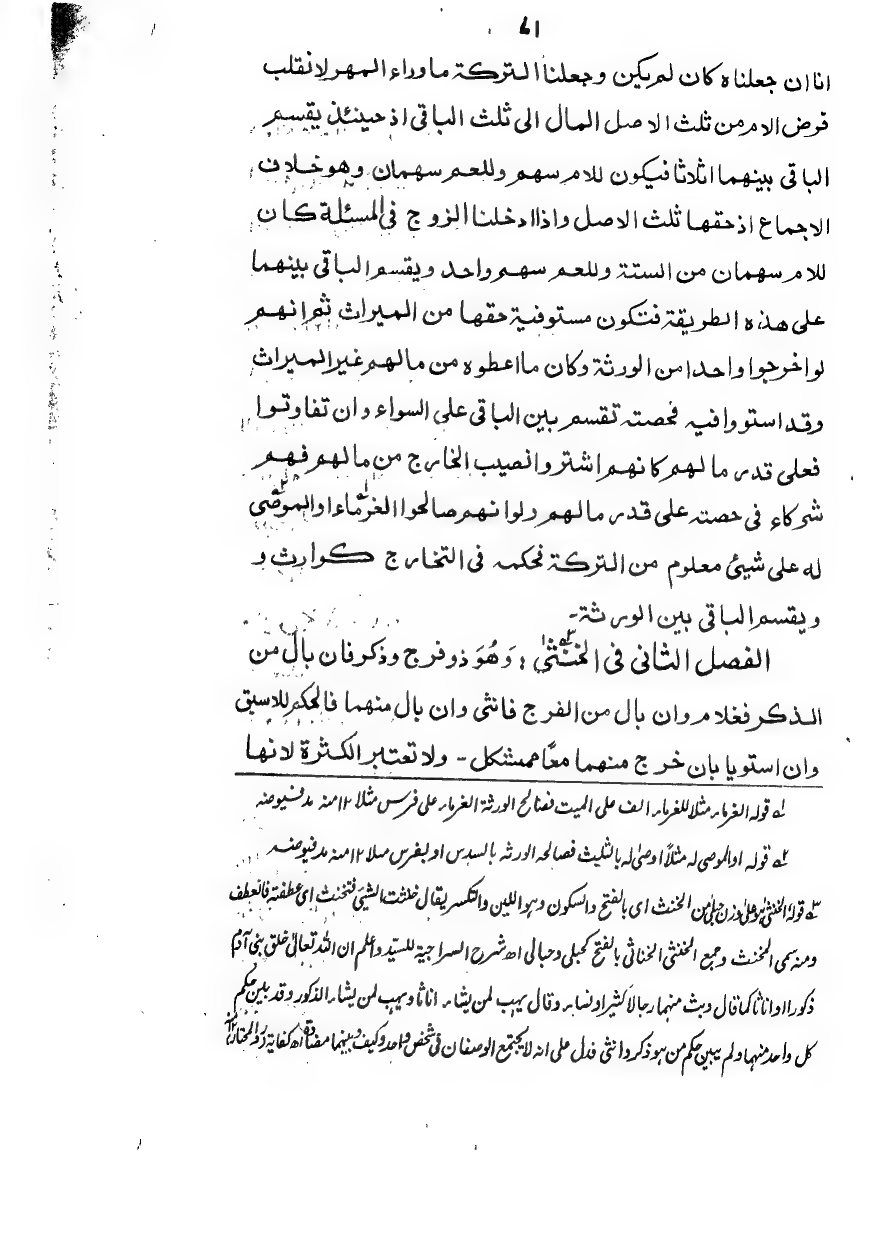 ٤١
انا ان جعلناه كان لم يكن وجعلنا التركة ما وراء المهر لانقلب
فرض الام من ثلث الاصل المال الى ثلث الباقى اذ حينئذ يقسم
الباقى بينهما اثلاثا فيكون للام سهم وللعم سهمان وهو خلاف
الاجماع اذ حقها ثلث الاصل واذا ادخلنا الزوج فى المسئلة كان
للام سهمان من الستة وللعم سهم واحد ويقسم الباقى بينهما
على هذه الطريقة فتكون مستوفية حقها من الميراث ثم انهم
لو اخرجوا واحدا من الورثة وكان ما اعطوه من مالهم غير الميراث
وقد استووا فيه فحصته تقسم بين الباقى على السواء وان تفاوتوا
فعلى قدر مالهم كانهم اشتروا نصيب الخارج من مالهم فهم
شركاء فى حصته على قدر مالهم ولو انهم صالحوا الغرماء او الموصى
له على شيئ معلوم من التركة فحكمه فى التخارج كوارث و
ويقسم الباقى بين الورثة۔
الفصل الثانى فى الخنثى؛ وَهُوَ ذو فرج وذكر فان بال من
الذكر فغلام وان بال من الفرج فانثى وان بال منهما فالحكم للاسبق
وان استويا بان خرج منهما معًا فمشكل۔ ولا تعتبر الكثرة لانها
لـه قوله الغرماء مثلا للغرماء الف على الميت فصالح الورثة الغرماء على فرس مثلا ١٢ منه مد فيوضه
٢ـه قوله او الموصى له مثلاً اوصى له بالثلث فصالحه الورثه بالسدس او بفرس مثلا ١٢ منه مد فيوضه
٣ـه قوله الخنثى هو على وزن حبلى من الخنث اى بالفتح والسكون وهو اللين والتكسر يقال خنثت الشئ فتخنث اى عطفته فانعطف
ومنه سمى المخنث وجمع الخنثى الخناثى بالفتح كحبلى وحبالى اھ شرح السراجية للسيد واعلم ان الله تعالى خلق بنى آدم
ذكورا واناثا كما قال وبث منهما رجالا كثيرا ونساء وقال يهب لمن يشاء اناثا ويهب لمن يشاء الذكور وقد بين حكم
كل واحد منهما ولم يبين حكم من هو ذكر وانثى فدل على انه لا يجتمع الوصفان فى شخص واحد وكيف وبينهما مضادة اھ كفاية رد المحتار ١٢